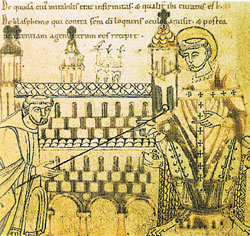 De quoda ciui mirabilis infirmitas & qualit ibi curatus
De blasphemo qui contra scm di loquens oculos amisit & postea
agens eos recepit.